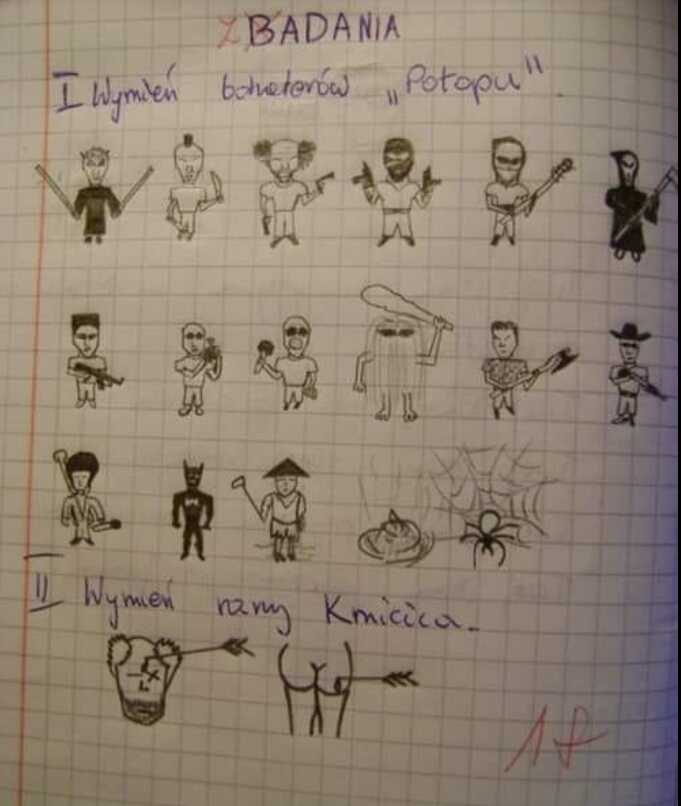 ZBADANIA
I Wymień bohaterów „Potopu".
II Wymień rany Kmicica.